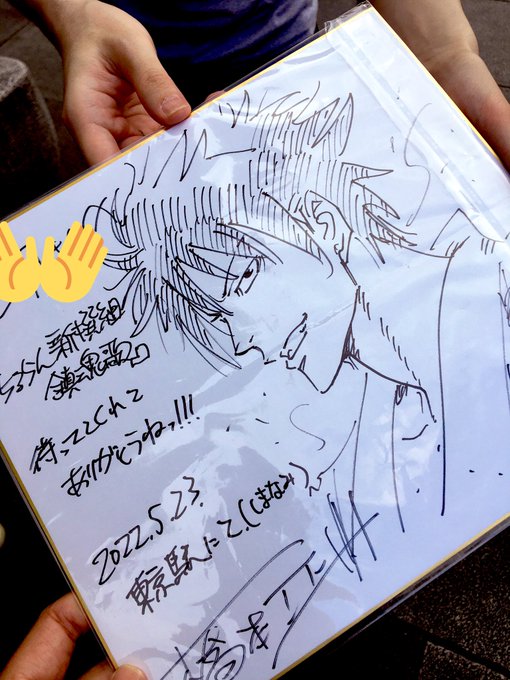 ちるらん新撰組
鎮魂歌
待っててくれて
ありがとうねっ!!!
2022.5.23.
東京駅にて.
橋本エイジ